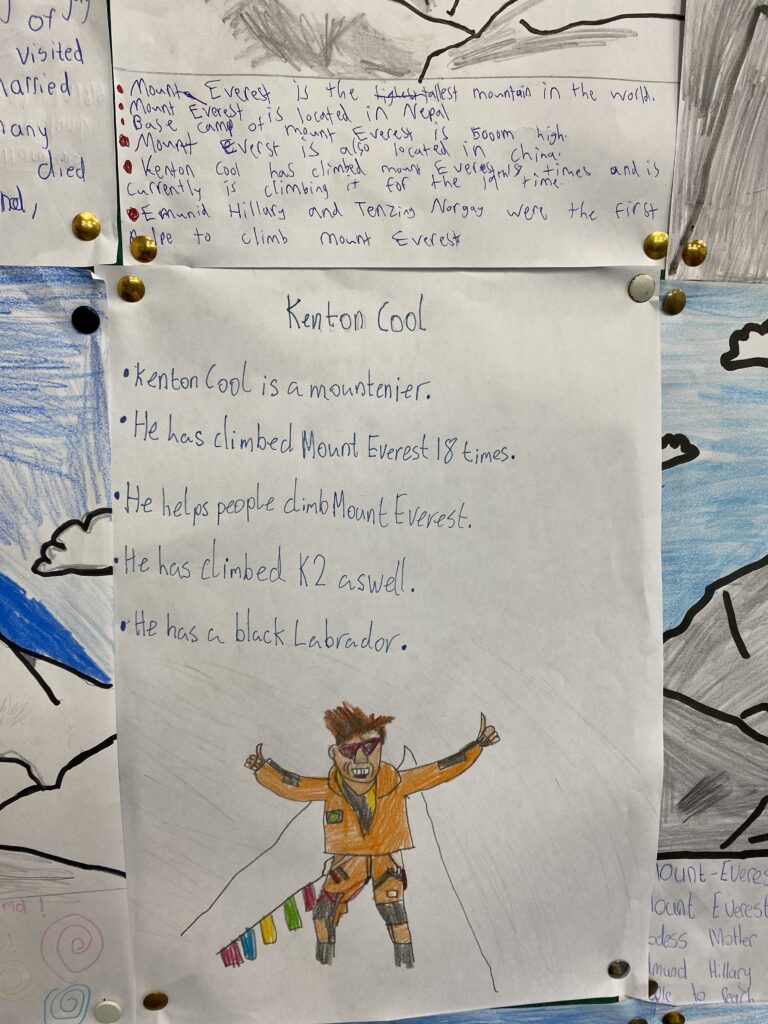 of
visited
married
many
died
Mount Everest is the tallest mountain in the world.
Mount Everest is located in Nepal
Base camp of mount Everest is 5000m high.
Mount Everst is also located in China.
Kenton Cool has climbed mount Everest 18 times and is
currently is climbing it for the 19th time.
Emunid Hillary and Tenzing Norgay were the first
to climb mount Everest
Kenton Cool
• Kenton Cool is a mountenier.
• He has climbed Mount Everest 18 times.
• He helps people climb Mount Everest.
• He has climbed K2 aswell.
• He has a black Labrador.
Mount Everest
Mother
Hillary
to reach